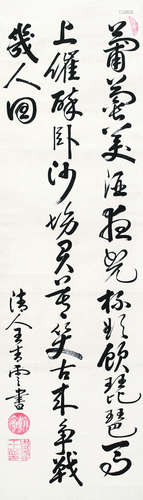 葡萄美酒夜光杯欲飲琵琶馬
上催醉臥沙場君莫笑古來爭戰
幾人回
清人王雲書